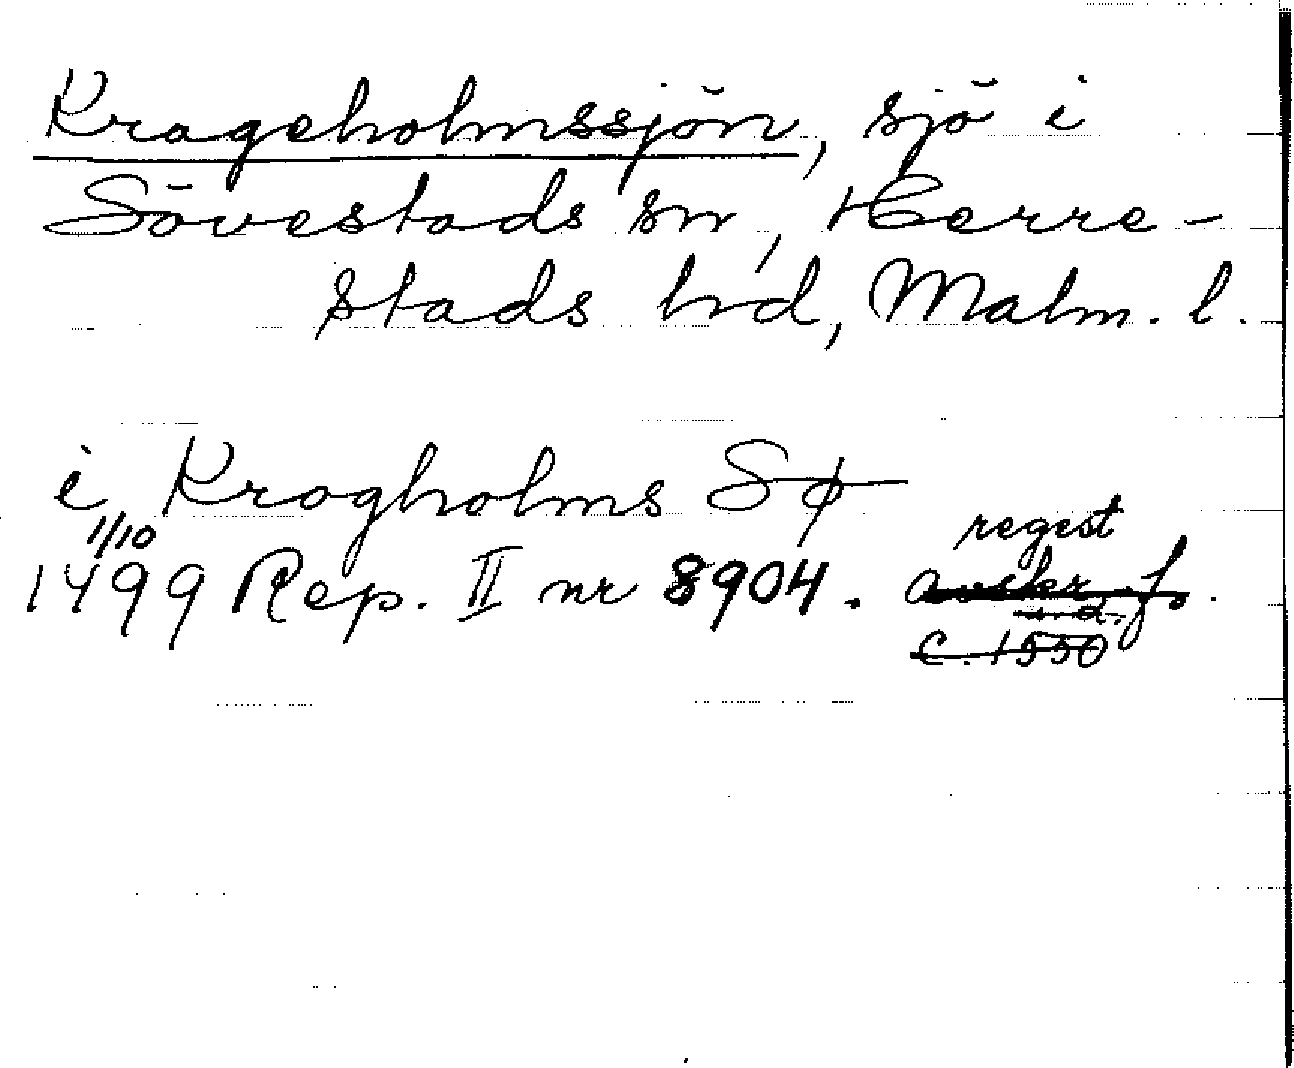 Krageholmssjön, sjö i
Sövestads sn, Herre-
stads hd, Malm. l.
i Krogholms Sø
1/10
regest
1499 Rep. II nr 8904. avskr. f.
c. 1550